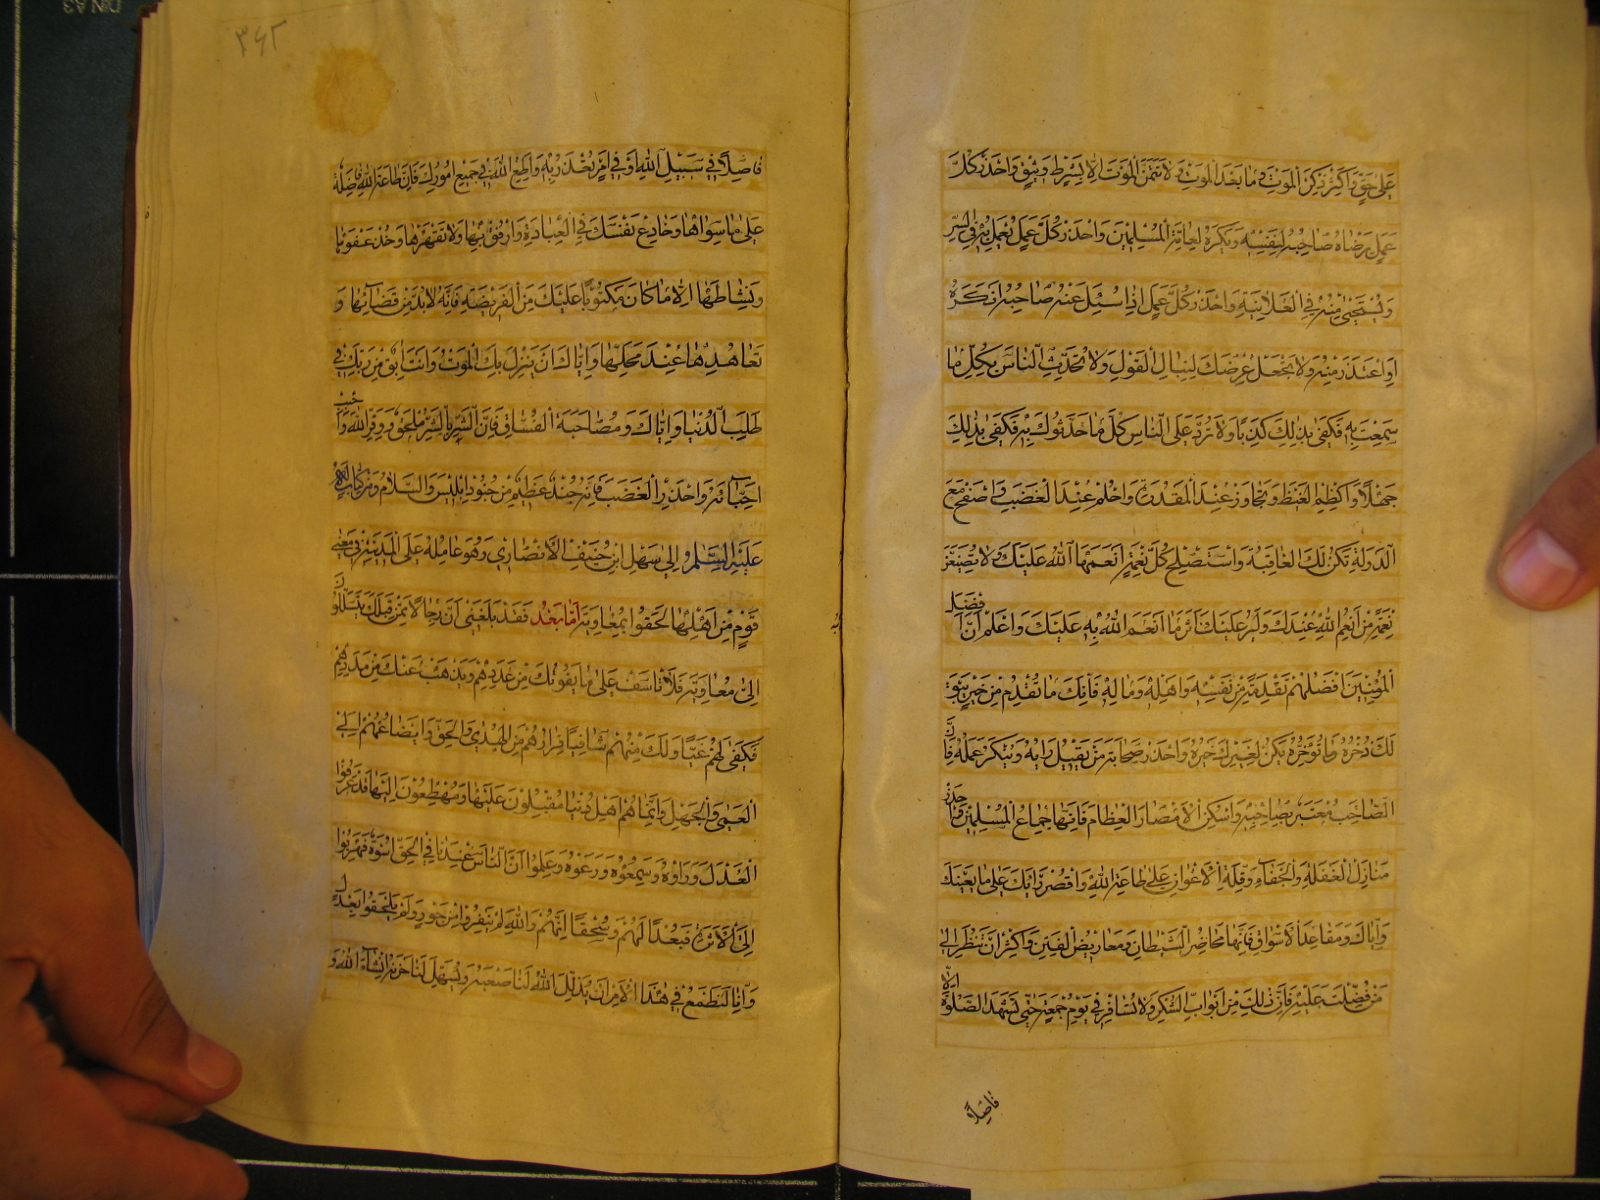 عَلَى حَقٍّ وَأَكْثِرْ ذِكْرَ الْمَوْتِ وَمَا بَعْدَ الْمَوْتِ وَلَا تَتَمَنَّ الْمَوْتَ إِلَّا بِشَرْطٍ وَثِيقٍ وَاحْذَرْ كُلَّ
عَمَلٍ يَرْضَاهُ صَاحِبُهُ لِنَفْسِهِ وَيَكْرَهُ لِعَامَّةِ الْمُسْلِمِينَ وَاحْذَرْ كُلَّ عَمَلٍ يُعْمَلُ بِهِ فِي السِّرِّ
وَيُسْتَحْيَى مِنْهُ فِي الْعَلَانِيَةِ وَاحْذَرْ كُلَّ عَمَلٍ إِذَا سُئِلَ عَنْهُ صَاحِبُهُ أَنْكَرَهُ
أَوِ اعْتَذَرَ مِنْهُ وَلَا تَجْعَلْ عِرْضَكَ لِنِبَالِ الْقَوْلِ وَلَا تُحَدِّثِ النَّاسَ بِكُلِّ مَا
سَمِعْتَ بِهِ فَكَفَى بِذَلِكَ كَذِبًا وَلَا تَرُدَّ عَلَى النَّاسِ كُلَّ مَا حَدَّثُوكَ بِهِ فَكَفَى بِذَلِكَ
جَهْلًا وَاكْظِمِ الْغَيْظَ وَتَجَاوَزْ عِنْدَ الْمَقْدَرَةِ وَاحْلُمْ عِنْدَ الْغَضَبِ وَاصْفَحْ مَعَ
الدَّوْلَةِ تَكُنْ لَكَ الْعَاقِبَةُ وَاسْتَصْلِحْ كُلَّ نِعْمَةٍ أَنْعَمَهَا اللهُ عَلَيْكَ وَلَا تُضَيِّعَنَّ
نِعْمَةً مِنْ نِعَمِ اللهِ عِنْدَكَ وَلْيُرَ عَلَيْكَ أَثَرُ مَا أَنْعَمَ اللهُ بِهِ عَلَيْكَ وَاعْلَمْ أَنَّ أَفْضَلَ
الْمُؤْمِنِينَ أَفْضَلُهُمْ تَقْدِمَةً مِنْ نَفْسِهِ وَأَهْلِهِ وَمَالِهِ فَإِنَّكَ مَا تُقَدِّمْ مِنْ خَيْرٍ يَبْقَ
لَكَ ذُخْرُهُ وَمَا تُؤَخِّرْهُ يَكُنْ لِغَيْرِكَ خَيْرُهُ وَاحْذَرْ صَحَابَةَ مَنْ يَفِيلُ رَأْيُهُ وَيُنْكَرُ عَمَلُهُ فَإِنَّ
الصَّاحِبَ مُعْتَبَرٌ بِصَاحِبِهِ وَاسْكُنِ الْأَمْصَارَ الْعِظَامَ فَإِنَّهَا جِمَاعُ الْمُسْلِمِينَ وَاحْذَرْ
مَنَازِلَ الْغَفْلَةِ وَالْجَفَاءِ وَقِلَّةَ الْأَعْوَانِ عَلَى طَاعَةِ اللهِ وَاقْصُرْ رَأْيَكَ عَلَى مَا يَعْنِيكَ
وَإِيَّاكَ وَمَقَاعِدَ الْأَسْوَاقِ فَإِنَّهَا مَحَاضِرُ الشَّيْطَانِ وَمَعَارِيضُ الْفِتَنِ وَأَكْثِرْ أَنْ تَنْظُرَ إِلَى
مَنْ فُضِّلْتَ عَلَيْهِ فَإِنَّ ذَلِكَ مِنْ أَبْوَابِ الشُّكْرِ وَلَا تُسَافِرْ فِي يَوْمِ جُمُعَةٍ حَتَّى تَشْهَدَ الصَّلَوةَ إِلَّا
فَاصِلًا
٣٤٢
فَاصِلًا فِي سَبِيلِ اللهِ أَوْ فِي أَمْرٍ تُعْذَرُ بِهِ وَأَطِعِ اللهَ فِي جَمِيعِ أُمُورِكَ فَإِنَّ طَاعَةَ اللهِ فَاضِلَةٌ
عَلَى مَا سِوَاهَا وَخَادِعْ نَفْسَكَ فِي الْعِبَادَةِ وَارْفُقْ بِهَا وَلَا تَقْهَرْهَا وَخُذْ عَفْوَهَا
وَنَشَاطَهَا إِلَّا مَا كَانَ مَكْتُوبًا عَلَيْكَ مِنَ الْفَرِيضَةِ فَإِنَّهُ لَابُدَّ مِنْ قَضَائِهَا وَ
تَعَاهُدِهَا عِنْدَ مَحَلِّهَا وَإِيَّاكَ أَنْ يَنْزِلَ بِكَ الْمَوْتُ وَأَنْتَ آبِقٌ مِنْ رَبِّكَ فِي
طَلَبِ الدُّنْيَا وَإِيَّاكَ وَمُصَاحَبَةَ الْفُسَّاقِ فَإِنَّ الشَّرَّ بِالشَّرِّ مُلْحَقٌ وَوَقِّرِ اللهَ وَأَحْبِبْ
أَحِبَّاءَهُ وَاحْذَرِ الْغَضَبَ فَإِنَّهُ جُنْدٌ عَظِيمٌ مِنْ جُنُودِ إِبْلِيسَ وَالسَّلَامُ وَمِنْ كِتَابٍ لَهُ
عَلَيْهِ السَّلَمُ إِلَى سَهْلِ بْنِ حُنَيْفٍ الْأَنْصَارِيِّ وَهُوَ عَامِلُهُ عَلَى الْمَدِينَةِ فِي مَعْنَى
قَوْمٍ مِنْ أَهْلِهَا لَحِقُوا بِمُعَاوِيَةَ أَمَّا بَعْدُ فَقَدْ بَلَغَنِي أَنَّ رِجَالًا مِمَّنْ قِبَلَكَ يَتَسَلَّلُونَ
إِلَى مُعَاوِيَةَ فَلَا تَأْسَفْ عَلَى مَا يَفُوتُكَ مِنْ عَدَدِهِمْ وَيَذْهَبُ عَنْكَ مِنْ مَدَدِهِمْ
فَكَفَى لَهُمْ غَيًّا وَلَكَ مِنْهُمْ شَافِيًا فِرَارُهُمْ مِنَ الْهُدَى وَالْحَقِّ وَإِيضَاعُهُمْ إِلَى
الْعَمَى وَالْجَهْلِ وَإِنَّمَا هُمْ أَهْلُ دُنْيَا مُقْبِلُونَ عَلَيْهَا وَمُهْطِعُونَ إِلَيْهَا قَدْ عَرَفُوا
الْعَدْلَ وَرَأَوْهُ وَسَمِعُوهُ وَوَعَوْهُ وَعَلِمُوا أَنَّ النَّاسَ عِنْدَنَا فِي الْحَقِّ أُسْوَةٌ فَهَرَبُوا
إِلَى الْأَثَرَةِ فَبُعْدًا لَهُمْ وَسُحْقًا إِنَّهُمْ وَاللهِ لَمْ يَنْفِرُوا مِنْ جَوْرٍ وَلَمْ يَلْحَقُوا بِعَدْلٍ
وَإِنَّا لَنَطْمَعُ فِي هَذَا الْأَمْرِ أَنْ يُذَلِّلَ اللهُ لَنَا صَعْبَهُ وَيُسَهِّلَ لَنَا حَزْنَهُ إِنْ شَاءَ اللهُ وَ